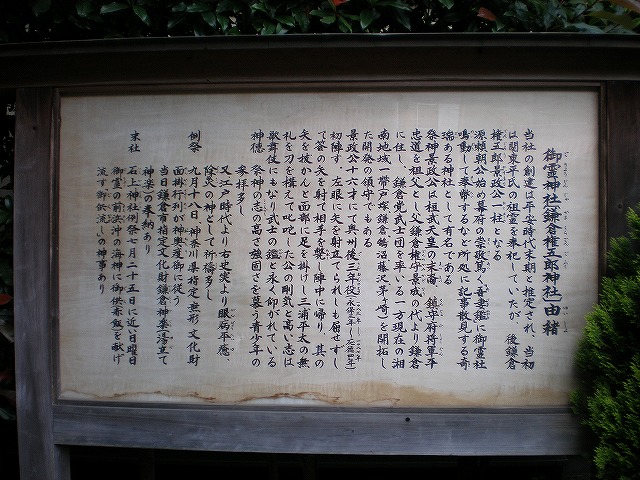 御霊神社(鎌倉権五郎神社)由緒
当社の創建は平安時代末期と推定され、当初
は関東平氏の祖霊を奉祀していたが、後鎌倉
権五郎景政公一柱となる
源頼朝公始め幕府の崇敬篤く吾妻鏡に御霊社
鳴動して奉幣するなど所処に记事散見する奇
瑞ある神社として有名である
祭神景政公は桓武天皇の末裔、鎮守府将軍平
忠通を祖父とし父鎌倉権守景成の代より鎌倉
に住し、鎌倉党武士団を率いる一方現在の湘
南地域一帯(戸塚鎌倉鵠沼藤沢茅ヶ崎)を開拓し
た開発の領主でもある
景政公十六才にて奥州後三年役(永保三年~元禄四年)
初陣す、左眼に矢を射立てられも屈せずし
て答の矢を射て相手を斃し陣中に帰り、其の
矢を抜かんと面部に足を掛けし三浦平太の無
礼を刀を構えて叱咤した公の剛気と高い志は
歌舞伎にもなり武士の鑑と永く仰がれている
神徳 祭神の志の高さ強固さを慕う青少年の
参拝多し
又江戸時代より右史実より眼病平癒、
除災の神として祈祷多し
例祭 九月十八日 神奈川県指定無形文化財
面掛行列が神輿渡御に従う
当日鎌倉市指定文化財鎌倉神楽(湯立て
神楽)の奉納あり
末社 石上神社例祭七月二十五日に近い日曜日
御霊の前浜沖の海神に御供赤飯を献げ
流す御供流しの神事あり